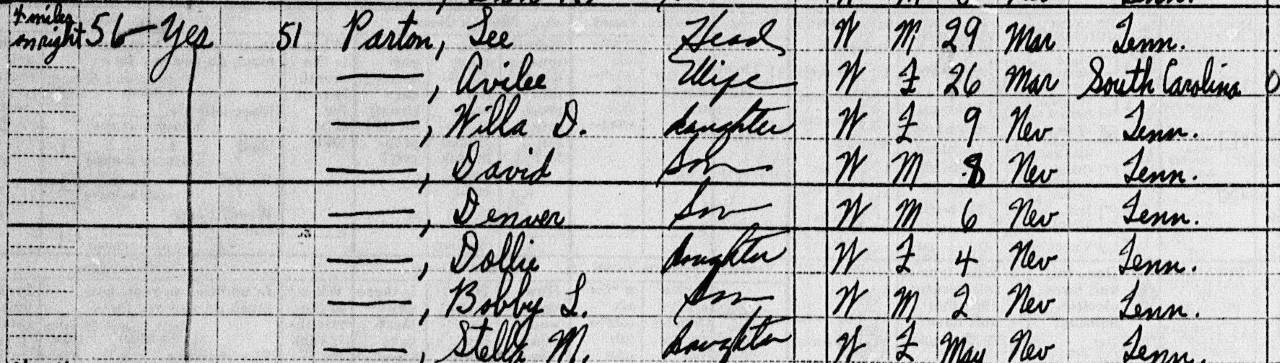 4 miles
on right 56 Yes 51 Parton, Lee Head W M 29 Mar Tenn.
——, Avilee Wife W F 26 Mar South Carolina
——, Willa D. Daughter W F 9 Nev Tenn.
——, David Son W M 8 Nev Tenn.
——, Denver Son W M 6 Nev Tenn.
——, Dollie Daughter W F 4 Nev Tenn.
——, Bobby L. Son W M 2 Nev Tenn.
——, Stella M. Daughter W F May Nev Tenn.